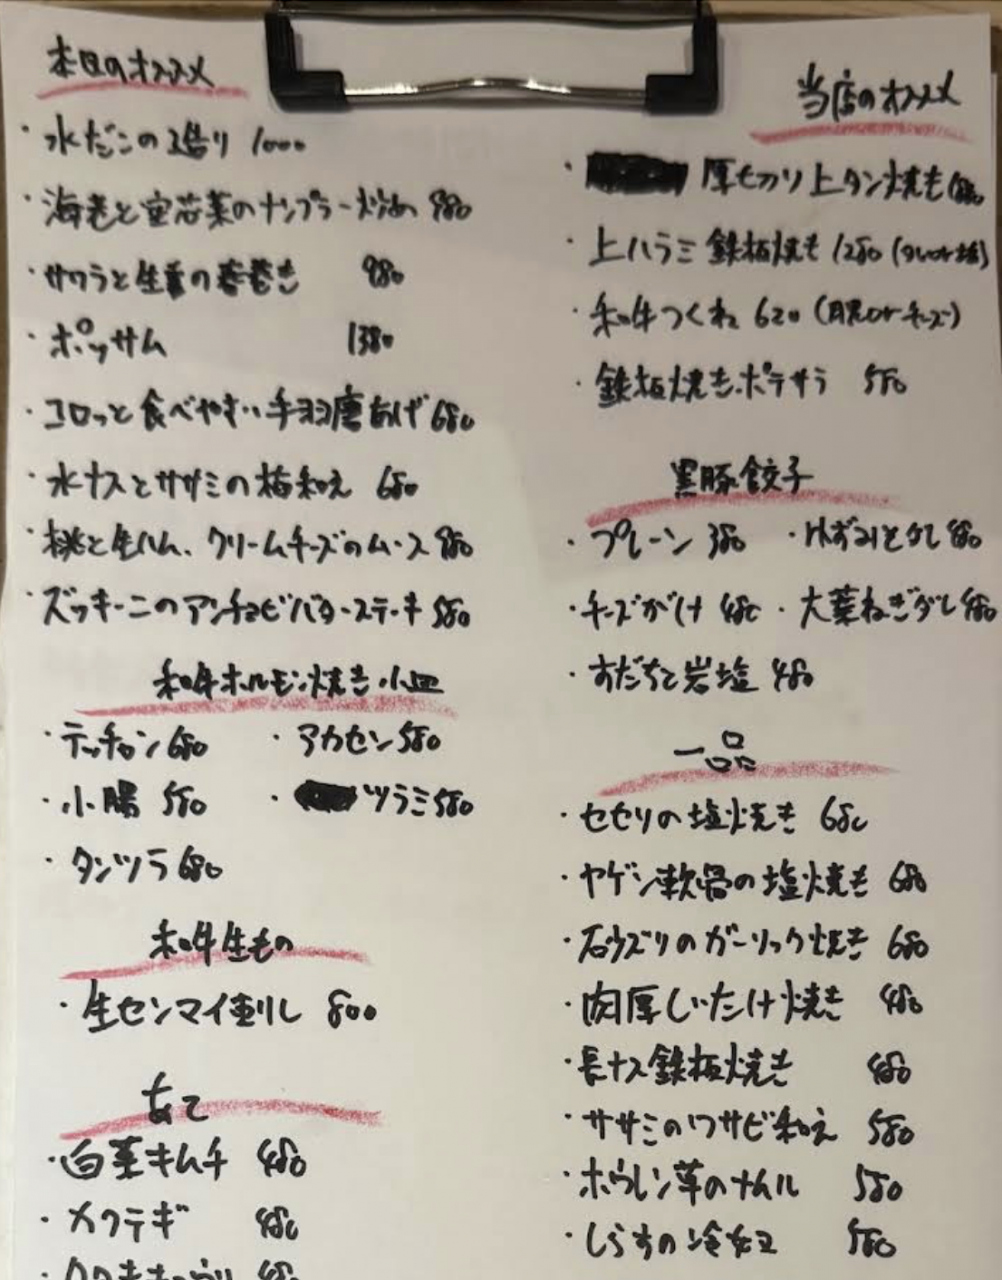 本日のオススメ
・水だこの造り 1000
・海老と空芯菜のナンプラー炒め 880
・サワラと生薑の春巻き 980
・ポッサム 1380
・コロッと食べやすい手羽唐あげ 680
・水ナスとササミの梅和え 680
・桃と生ハム、クリームチーズのムース 880
・ズッキーニのアンチョビバターステーキ 580
和牛ホルモン焼き小皿
・テッチャン 680 ・アカセン 580
・小腸 580 ・ツラミ 580
・タンツラ 680
和牛生もの
・生センマイ刺し 800
あて
・白菜キムチ 480
・メクテギ 480
480
当店のオススメ
・厚切り上タン焼き
・上ハラミ鉄板焼き 1280 (タレor塩)
・和牛つくね 620 (月見orチーズ)
・鉄板焼きポテサラ 580
黒豚餃子
・プレーン 380 ・ゆずみそダレ 480
・チーズがけ 480 ・大葉ねぎダレ 480
・すだちと岩塩 480
一品
・セセリの塩焼き 680
・ヤゲン軟骨の塩焼き 680
・石ウズリのガーリック焼き 680
・肉厚しいたけ焼き 480
・長ナス鉄板焼き 480
・ササミのワサビ和え 580
・ホウレン草のナムル 550
・しらすの冷奴 550